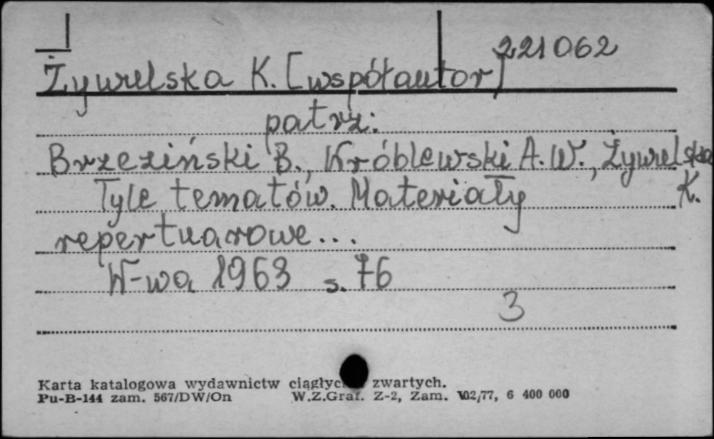 221062
Żywulska K. [współautor]
patrz:
Brzeziński B., Króblewski A.W., Żywulska K.
Tyle tematów. Materiały
repertuarowe...
W-wa 1963 s. 76
3
Karta katalogowa wydawnictw ciągłych zwartych.
Pu-B-144 zam. 567/DW/On W.Z.Graf. Z-2, Zam. 102/77, 6 400 000